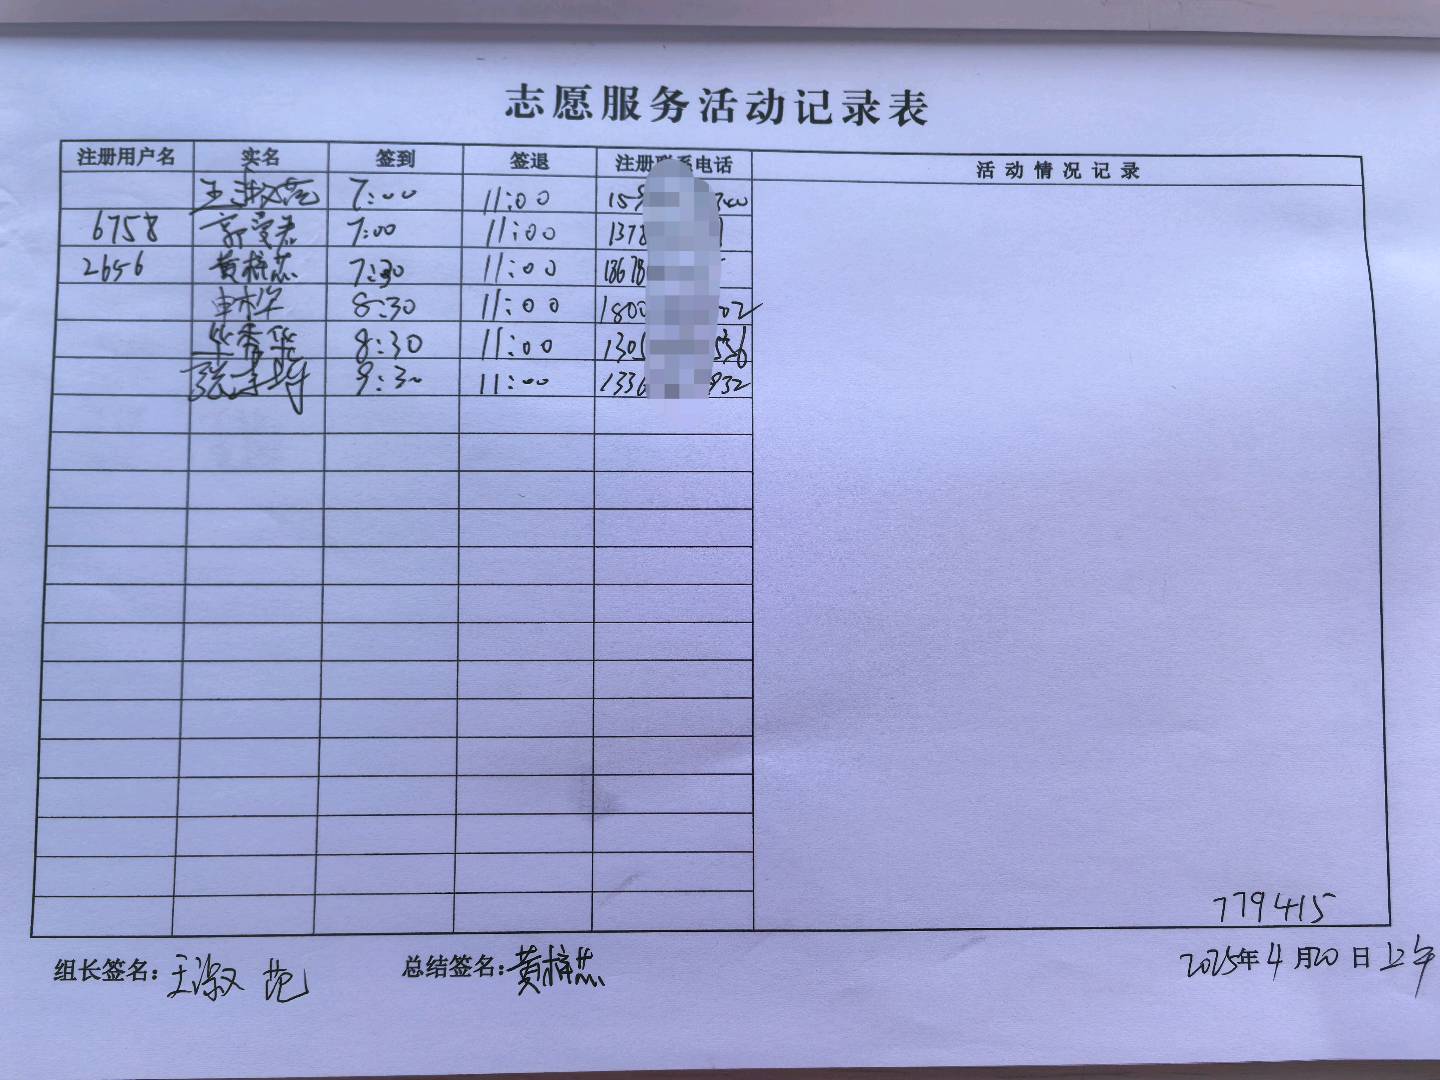 志愿服务活动记录表
注册用户名 实名 签到 签退 注册联系电话 活动情况记录
王淑范 7:00 11:00 159 340
6758 郭雯君 7:00 11:00 1378
2656 黄梓蕊 7:30 11:00 18678
申 8:30 11:00 1800 02
毕秀华 8:30 11:00 1305 556
9:30 11:00 1336 932
779415
组长签名：王淑范 总结签名：黄梓蕊 2025年4月20日上午